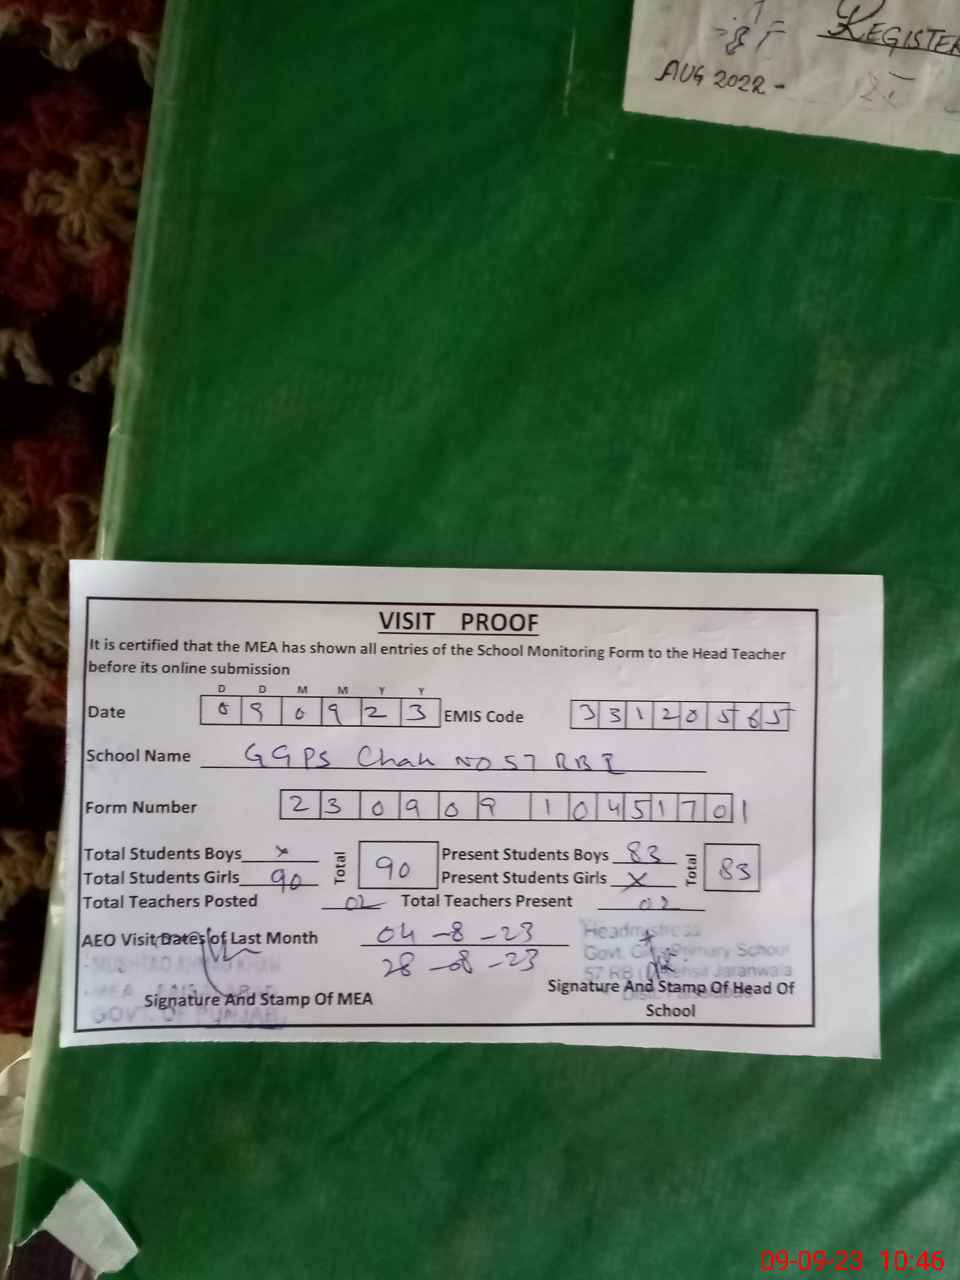 REGISTER
AUG 2022 -
VISIT PROOF
It is certified that the MEA has shown all entries of the School Monitoring Form to the Head Teacher
before its online submission
D D M M Y Y
Date 0 9 0 9 2 3 EMIS Code 3 3 1 2 0 5 6 5
School Name GGPS Chak NO 57 RB I
Form Number 2 3 0 9 0 9 1 0 4 5 1 7 0 1
Total Students Boys x Total 90 Present Students Boys 83 Total 83
Total Students Girls 90 Present Students Girls x
Total Teachers Posted 02 Total Teachers Present 02
AEO Visit Dates of Last Month 04-8-23
28-08-23
Headmistress
Govt. Girls Primary School
57 RB Jaranwala
Signature And Stamp Of MEA
GOVT. OF PUNJAB
Signature And Stamp Of Head Of
School
09-09-23 10:46